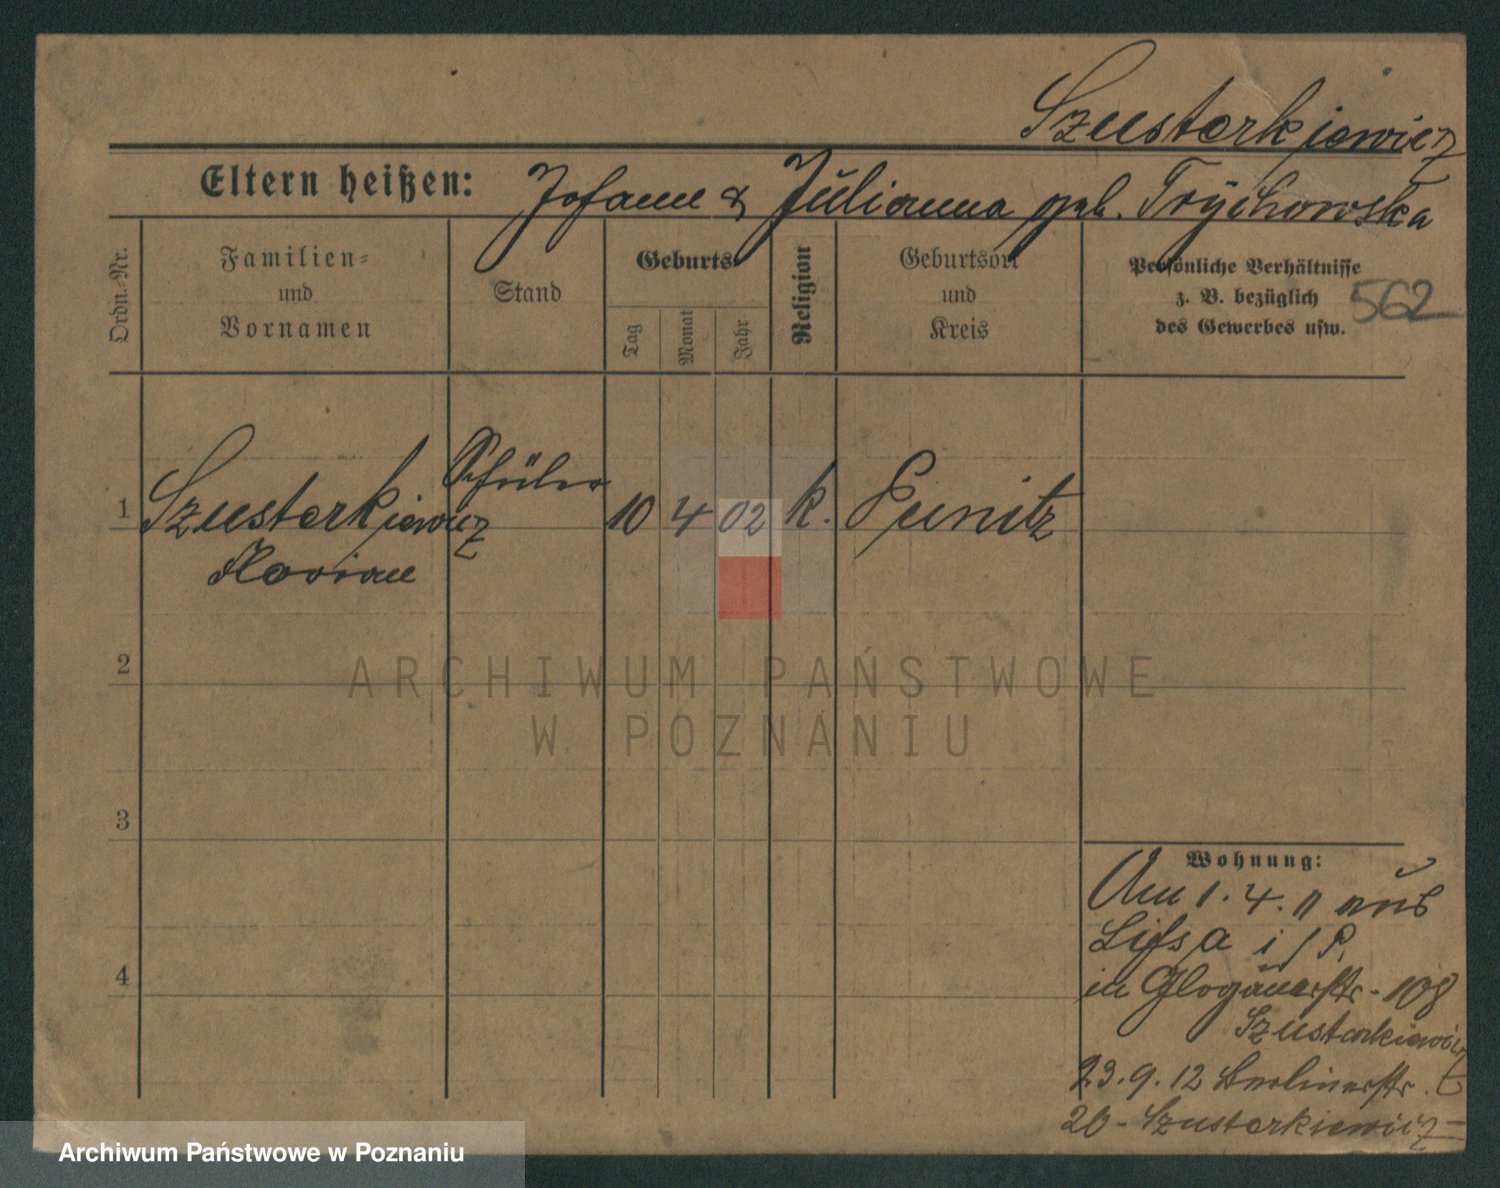 Szusterkiewicz
Eltern heißen: Johann & Julianna geb. Trÿchowska
Ordn.-Nr.
Familien-
und
Vornamen
Stand
Geburts-
Tag
Monat
Jahr
Religion
Geburtsort
und
Kreis
Persönliche Verhältnisse
z. B. bezüglich
des Gewerbes usw.
562
1 Szusterkiewicz Schüler 10 4 02 k. Punitz
Florian
2
3
4
ARCHIWUM PAŃSTWOWE
W POZNANIU
Wohnung:
Am 1. 4. 11 aus
Lissa i/P.
in Glogauerstr. 108
Szusterkiewicz
23.9.12 Berlinerstr.
20 - Szusterkiewicz
Archiwum Państwowe w Poznaniu